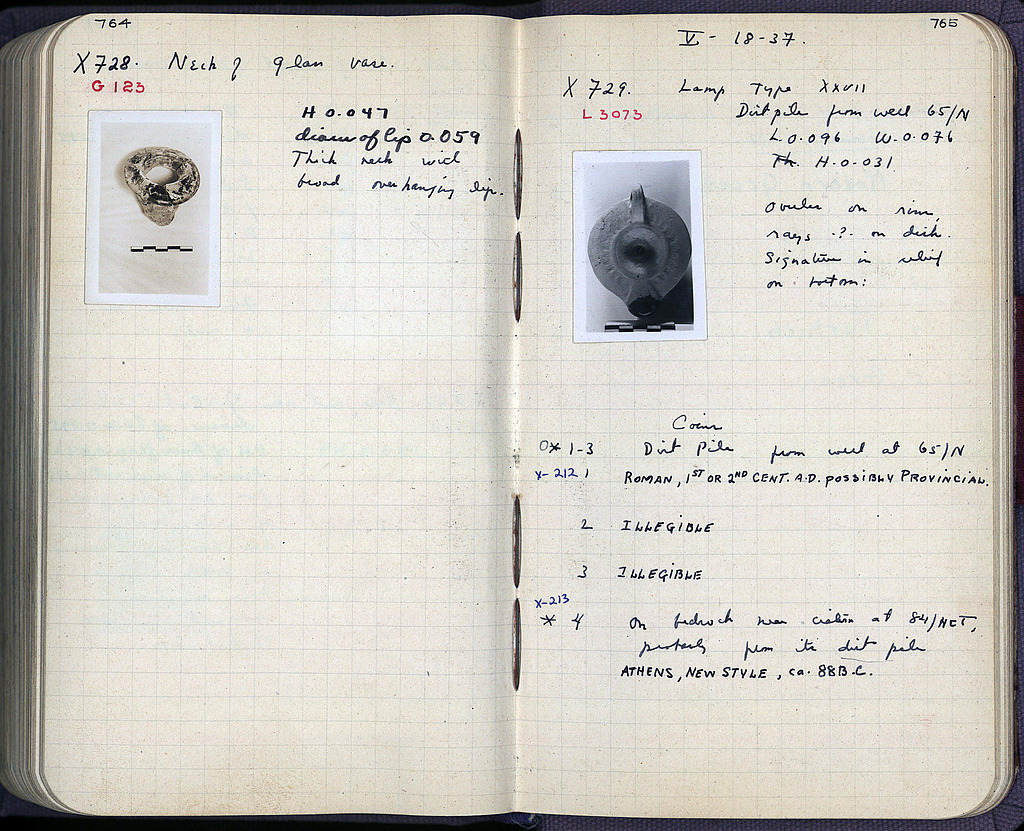 764
X 728. Neck of glass vase.
G 123
H 0.047
diam of lip 0.059
Thick neck with
broad overhanging lip.
765
V - 18-37.
X 729. Lamp Type XXVII
L 3073
Dirt pile from well 65/N
L 0.096 W. 0.076
Th. H. 0.031
Ovules on rim,
rays .?. on disk.
Signature in relief
on bottom:
Coins
O* 1-3 Dirt Pile from well at 65/N
X-212 1 ROMAN, 1ST OR 2ND CENT. A.D. POSSIBLY PROVINCIAL.
2 ILLEGIBLE
3 ILLEGIBLE
X-213
* 4 On bedrock near cistern at 84/ΛΣΤ,
probably from its dirt pile
ATHENS, NEW STYLE, ca. 88 B.C.